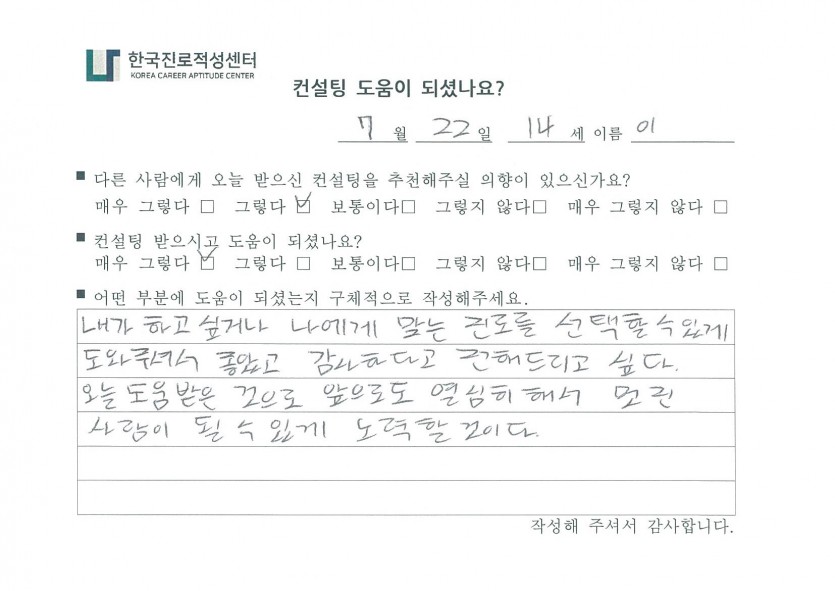 한국진로적성센터
KOREA CAREER APTITUDE CENTER
컨설팅 도움이 되셨나요?
7 월 22 일 14 세 이름 이
■ 다른 사람에게 오늘 받으신 컨설팅을 추천해주실 의향이 있으신가요?
매우 그렇다 □ 그렇다 ☑ 보통이다□ 그렇지 않다□ 매우 그렇지 않다 □
■ 컨설팅 받으시고 도움이 되셨나요?
매우 그렇다 ☑ 그렇다 □ 보통이다□ 그렇지 않다□ 매우 그렇지 않다 □
■ 어떤 부분에 도움이 되셨는지 구체적으로 작성해주세요.
내가 하고 싶거나 나에게 맞는 진로를 선택할 수 있게
도와줘서 좋았고 감사하다고 전해드리고 싶다.
오늘 도움 받은 것으로 앞으로도 열심히 해서 멋진
사람이 될 수 있게 노력할 것이다.
작성해 주셔서 감사합니다.